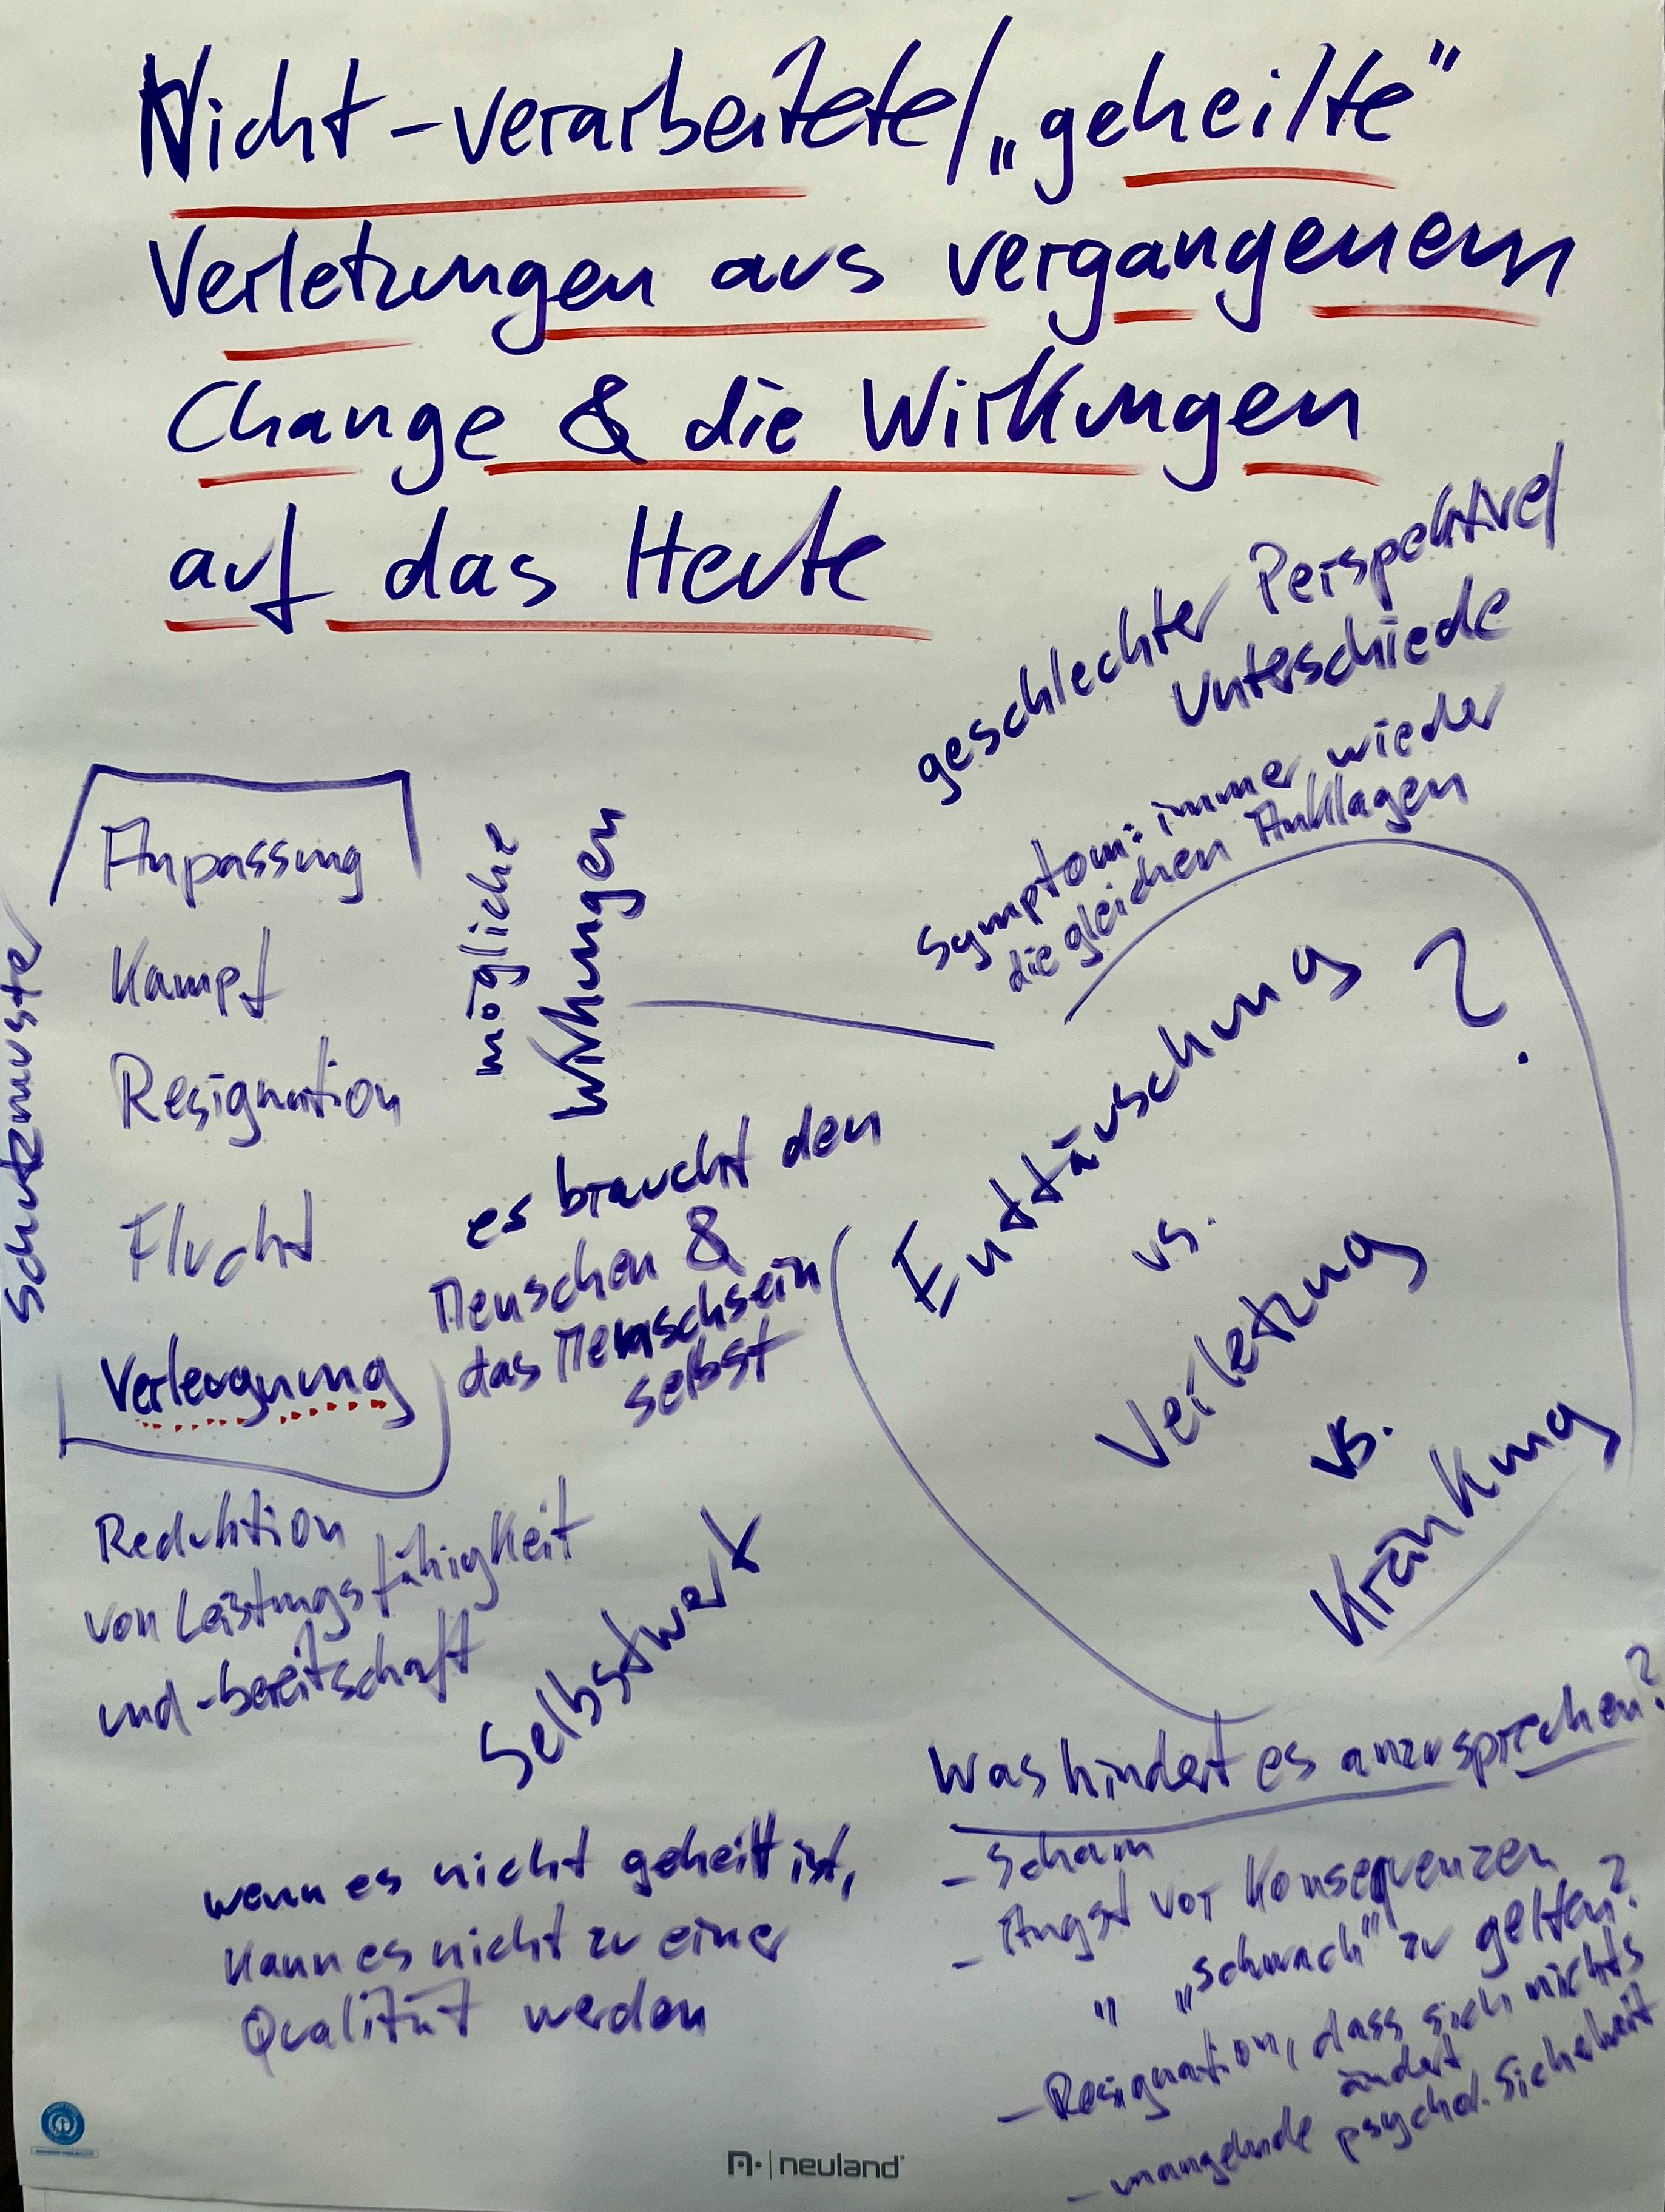 Nicht-verarbeitete/„geheilte"
Verletzungen aus vergangenem
Change & die Wirkungen
auf das Heute
geschlechter Perspektive/
Unterschiede
Symptom: immer wieder
die gleichen Anklagen
Schutzmuster
Anpassung
Kampf
Resignation
Flucht
Verleugnung
mögliche
Wirkungen
es braucht den
Menschen &
das Menschsein
selbst
Enttäuschung ?
vs.
Verletzung
vs.
Kränkung
Reduktion
von Leistungsfähigkeit
und -bereitschaft
Selbstwert
wenn es nicht geheilt ist,
kann es nicht zu einer
Qualität werden
Was hindert es anzusprechen?
- Scham
- Angst vor Konsequenzen
" „schwach" zu gelten?
- Resignation, dass sich nichts
ändert
- mangelnde psychol. Sicherheit
neuland